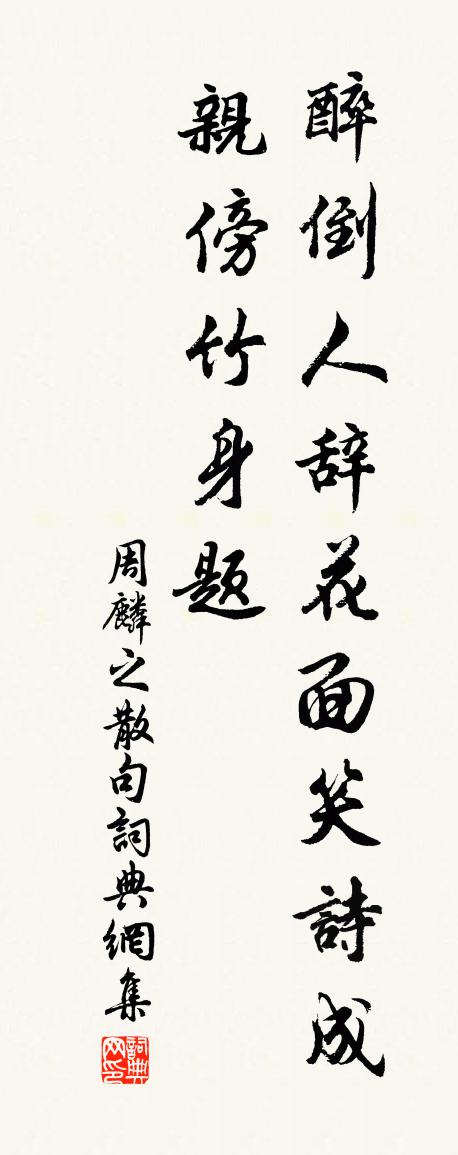 醉倒人辞花面笑詩成
親傍竹身題
周麟之散句詞典網集
詞典网印